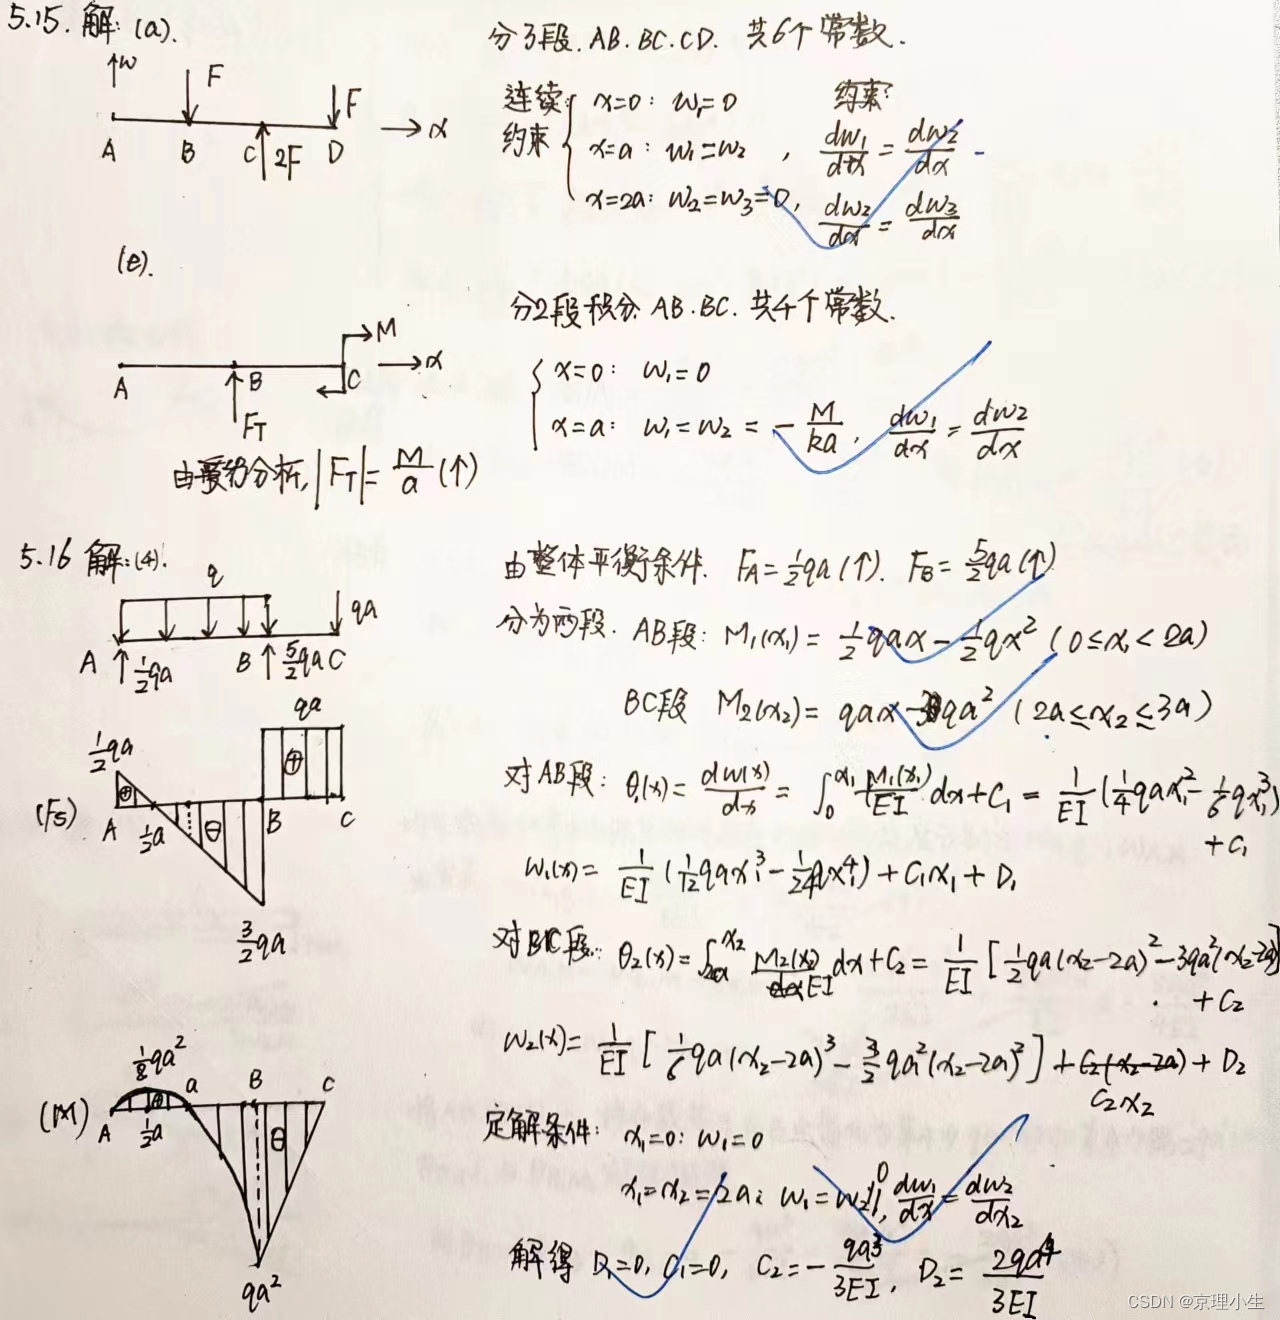 5.15. 解: (a).
↑w
F
F
A B C 2F D → x
分3段. AB. BC. CD. 共6个常数.
连续
约束
x=0: w₁=0
x=a: w₁=w₂ , dw₁/dx = dw₂/dx
x=2a: w₂=w₃=0, dw₂/dx = dw₃/dx
约束:
(e).
M
A B C → x
F_T
由受力分析, |F_T| = M/a (↑)
分2段积分 AB. BC. 共4个常数.
x=0: w₁=0
x=a: w₁=w₂ = - M/ka, dw₁/dx = dw₂/dx
5.16 解:
q
qa
A ½qa B 5/2qa C
由整体平衡条件. F_A=½qa(↑). F_B=5/2qa(↑)
分为两段. AB段: M₁(x₁) = ½qax - ½qx² (0≤x₁<2a)
BC段 M₂(x₂) = qax - 3qa² (2a≤x₂≤3a)
½qa
qa
(Fs) A ½a ⊖ B C
⊕
⊕
3/2qa
对AB段: θ₁(x) = dw(x)/dx = ∫₀^x₁ M₁(x₁)/EI dx + C₁ = 1/EI (¼qax₁² - 1/6qx₁³) + C₁
w₁(x) = 1/EI (1/12qax₁³ - 1/24qx₁⁴) + C₁x₁ + D₁
对BC段: θ₂(x) = ∫₂ₐ^x₂ M₂(x₂)/EI dx + C₂ = 1/EI [½qa(x₂-2a)² - 3qa²(x₂-2a)] + C₂
w₂(x) = 1/EI [1/6qa(x₂-2a)³ - 3/2qa²(x₂-2a)²] + C₂x₂ + D₂
⅛qa²
(M) A ½a a B C
⊖
qa²
定解条件: x₁=0: w₁=0
x₁=x₂=2a: w₁=w₂=0, dw₁/dx = dw₂/dx₂
解得 D₁=0, C₁=0, C₂= - qa³/3EI, D₂= 2qa⁴/3EI
CSDN @京理小生